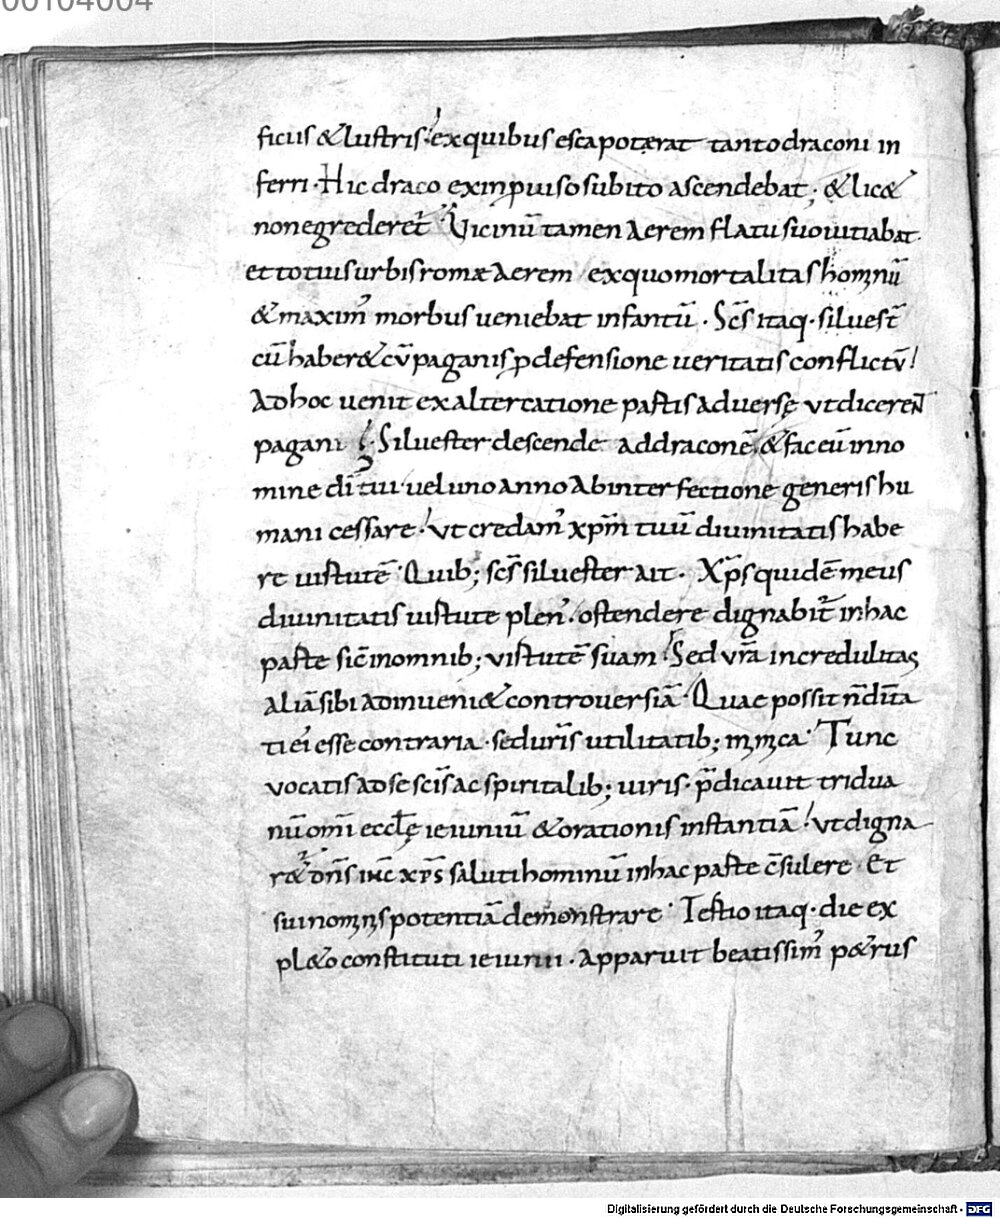 00104004
ficus &lustris. exquibus esca poterat tanto draconi in
ferri. Hic draco eximprouiso subito ascendebat; & lic&
nonegrederet̃ Vicinū tamen Aerem flatu suo uitiabat.
et totius urbis romæ Aerem exquo mortalitas hominū
& maxim᾽ morbus ueniebat infantū. Scs̄ itaq· siluest̄
cū haber& cū paganis p̱ defensione ueritatis conflictū!
Adhoc uenit exaltercatione partis aduersę vt dicereN̄
pagani. Siluester descende addraconē & fac eū inno
mine dī tui uel uno anno Ab interfectione generis hu
mani cessare! vt credam᾽ xp̄m tuū diuinitatis habe
re uirtutē Quib; scs̄ siluester ait. Xp̄s quidē meus
diuinitatis uirtute plen᾽ ostendere dignabit̃ inhac
parte sic̄ inomnib; virtutē suam Sed vr̄a incredulitas
aliā sibi adinueni& controuersiā Quae possit n̄ diūta
ti ei esse contraria. sed uris̄ utilitatib; inimica Tunc
vocatis adse scis̄ ac spiritalib; uiris. p̄dicauit tridua
nū omī eccłę ieiuniū & orationis instantiā! vt digna
r& dn̄s ihc̄ xp̄s saluti hominū inhac parte c̄sulere Et
sui nominis potentiā demonstrare Tertio itaq· die ex
pl&o constituti ieiunii. Apparuit beatissim᾽ p&rus
Digitalisierung gefördert durch die Deutsche Forschungsgemeinschaft - DFG